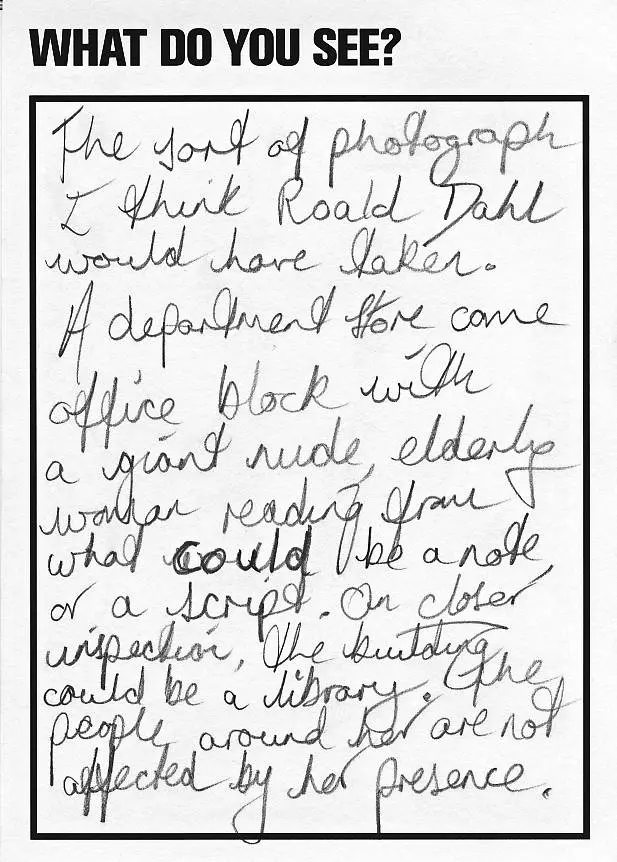 WHAT DO YOU SEE?
The sort of photograph
I think Roald Dahl
would have taken.
A department store come
office block with
a giant nude, elderly
woman reading from
what could be a note
or a script. On closer
inspection, the building
could be a library. The
people around her are not
affected by her presence.